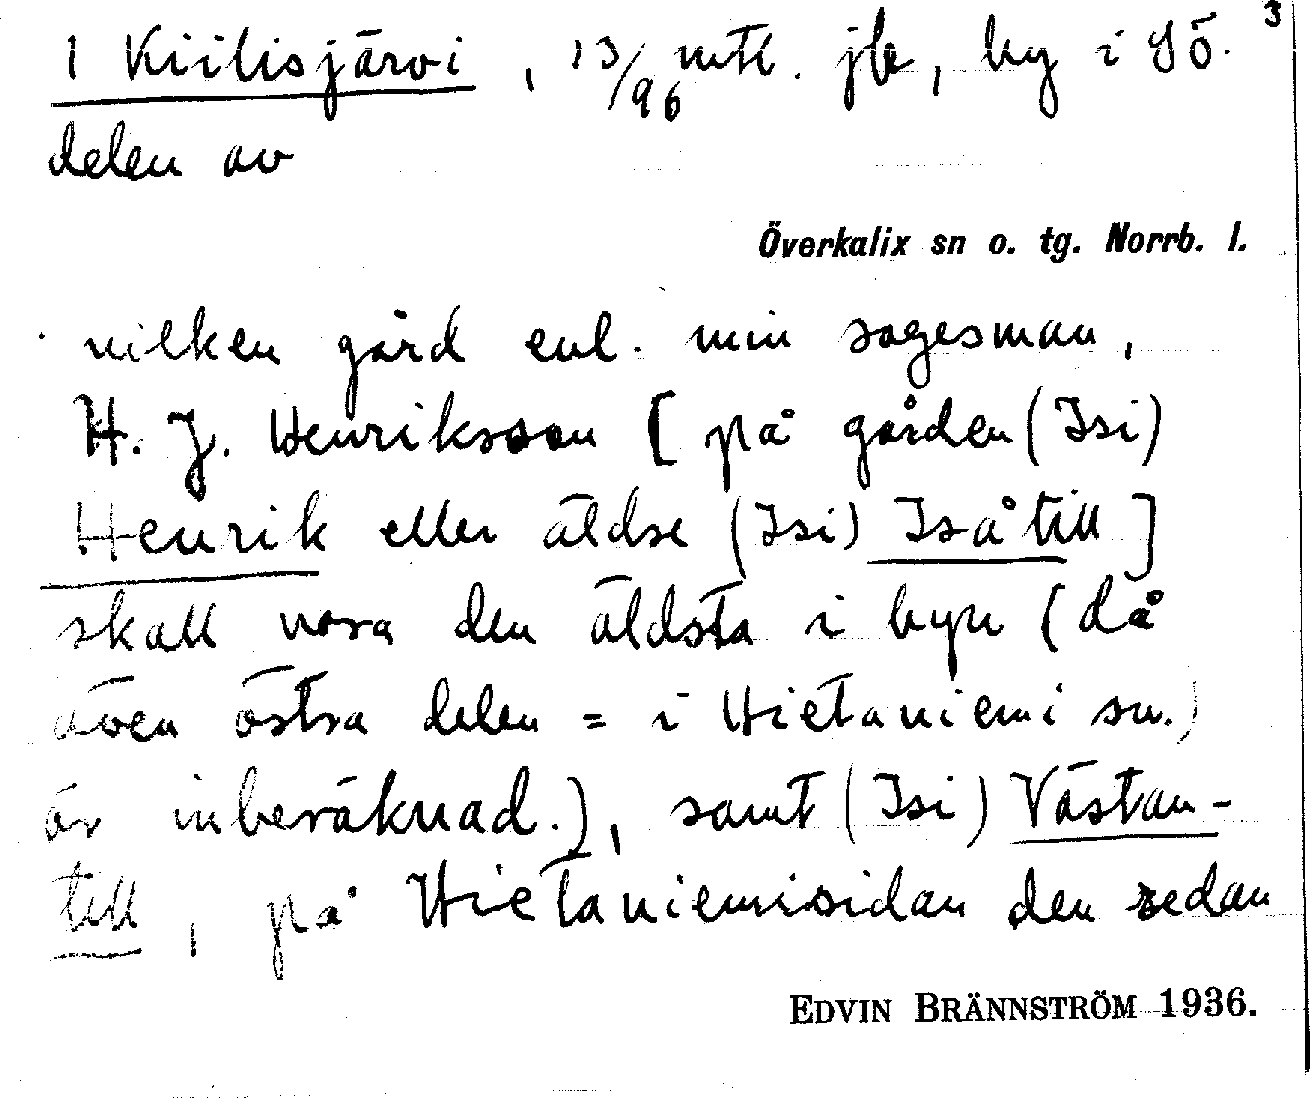 3
1 Kiilisjärvi, 13/96 mtl. jb, by i SÖ.
delen av
Överkalix sn o. tg. Norrb. l.
vilken gård enl. min sagesman,
H. J. Henriksson [på gården (Isi)
Henrik eller äldse (Isi) Isåtill]
skall vara den äldsta i byn (då
även östra delen = i Hietaniemi sn.)
är inberäknad.), samt (Isi) Västan-
till, på Hietaniemisidan den sedan
EDVIN BRÄNNSTRÖM 1936.